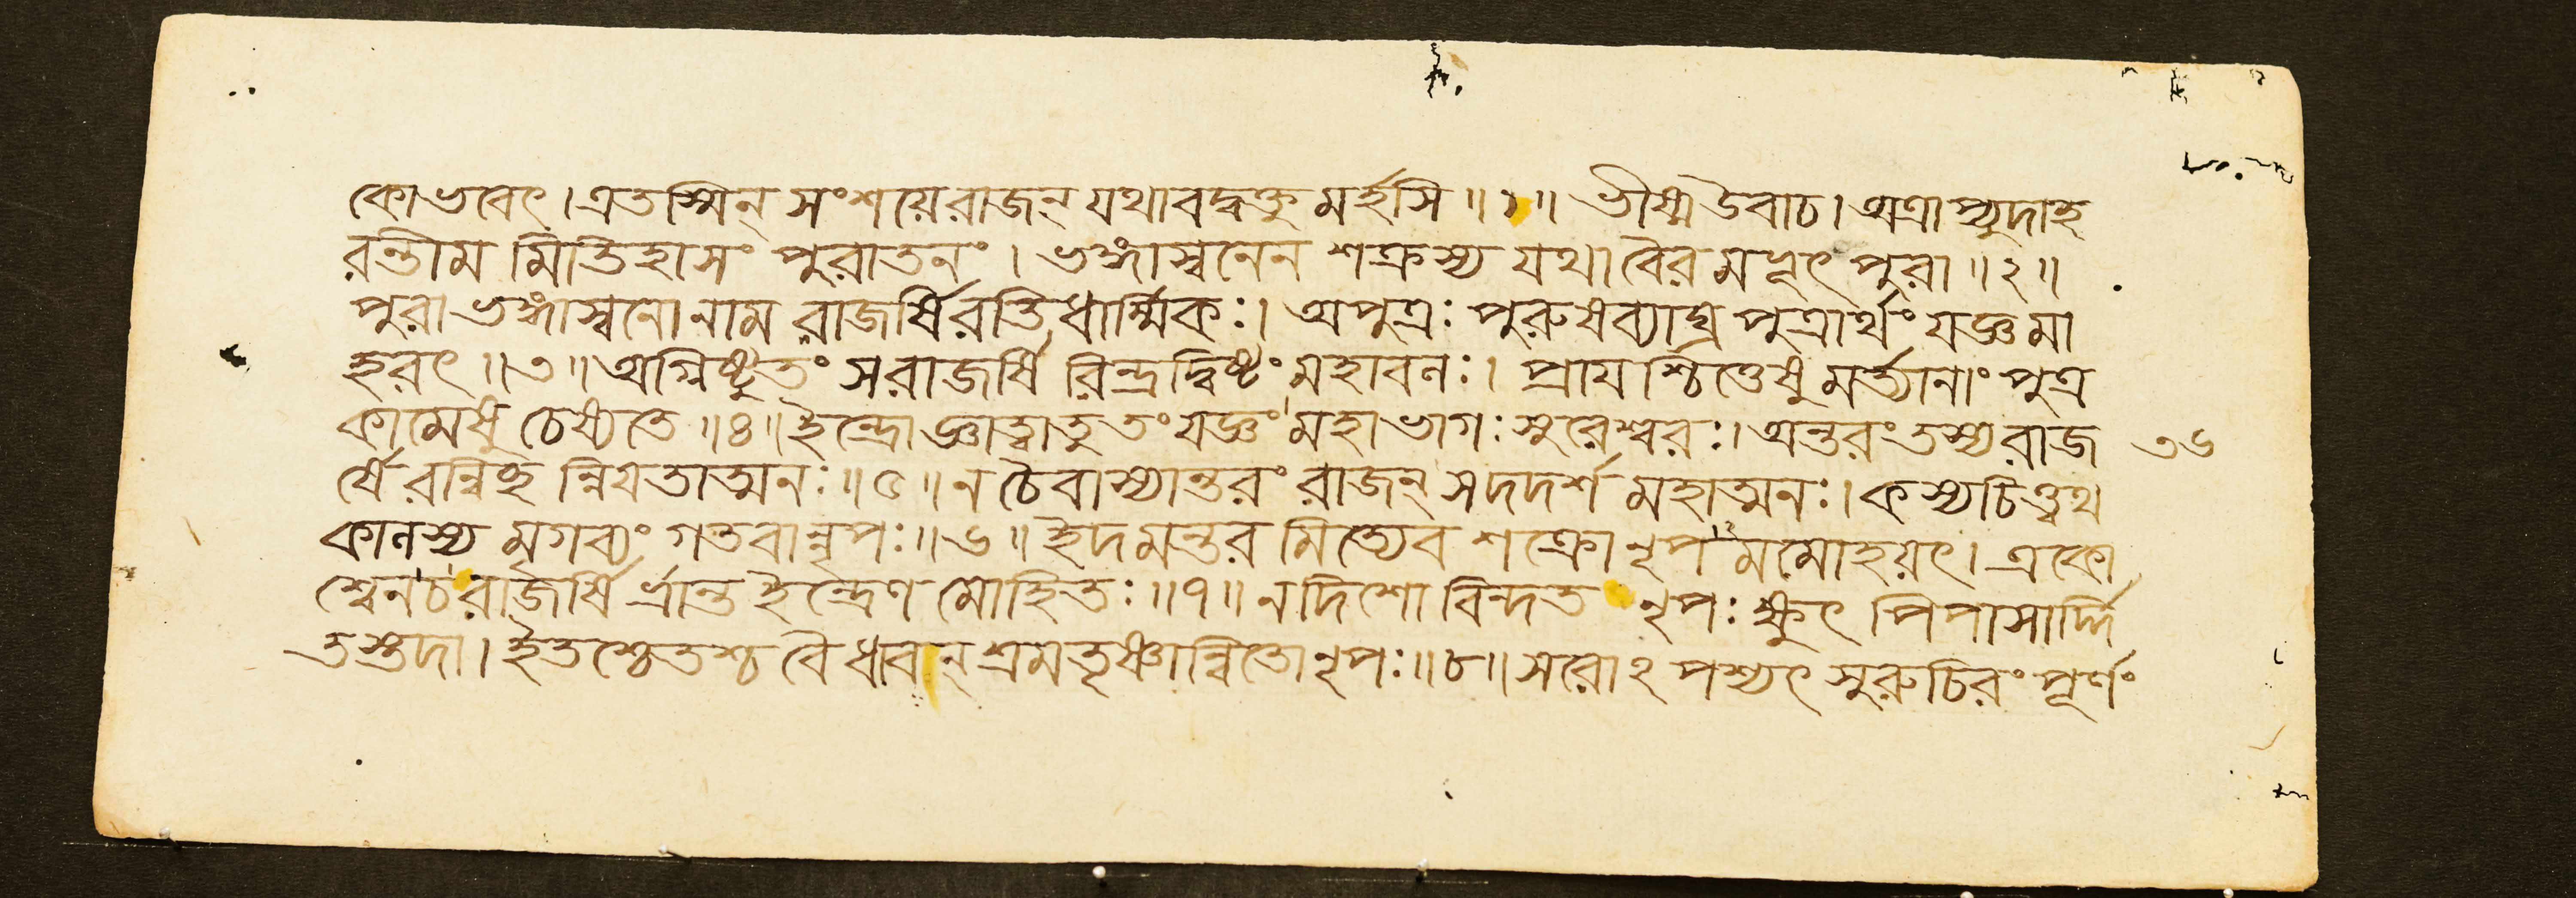 কো ভবেৎ । এতস্মিন্ সংশয়ে রাজন্ যথাবদ্বক্তু মর্হসি ॥ ১ ॥ ভীষ্ম উবাচ । অত্রাপ্যুদাহ
রন্তীম মিতিহাসং পুরাতনং । ভঙ্গাস্বনেন শক্রস্য যথা বৈর মভূৎ পুরা ॥ ২ ॥
পুরা ভঙ্গাস্বনো নাম রাজর্ষিরতি ধার্ম্মিকঃ । অপুত্রঃ পুরুষব্যাঘ্র পুত্রার্থং যজ্ঞ মা
হরৎ ॥ ৩ ॥ অগ্নিষ্টুতং স রাজর্ষি রিন্দ্রদ্বিষ্টং মহাবলঃ । প্রায়শ্চিত্তেষু মর্ত্যানাং পুত্র
কামেষু চেষ্যতে ॥ ৪ ॥ ইন্দ্রো জ্ঞাত্বা তু তং যজ্ঞং মহাভাগঃ সুরেশ্বরঃ । অন্তরং তস্য রাজ ৩৬
র্ষে রন্বিচ্ছ ন্নিযতাত্মনঃ ॥ ৫ ॥ ন চৈবাস্যান্তরং রাজন্ স দদর্শ মহাত্মনঃ । কস্যচিত্ত্বথ
কালস্য মৃগব্যং গতবান্নৃপঃ ॥ ৬ ॥ ইদমন্তর মিত্যেব শক্রো নৃপ মমোহয়ৎ । একা
শ্বেন চ রাজর্ষি র্ভ্রান্ত ইন্দ্রেণ মোহিতঃ ॥ ৭ ॥ ন দিশো বিন্দত নৃপঃ ক্ষুৎ পিপাসার্দ্দি
তস্তদা । ইতশ্চেতশ্চ বৈ ধাবন্ শ্রমতৃষ্ণান্বিতো নৃপঃ ॥ ৮ ॥ সরোঽ পশ্যৎ সুরুচিরং পূর্ণং